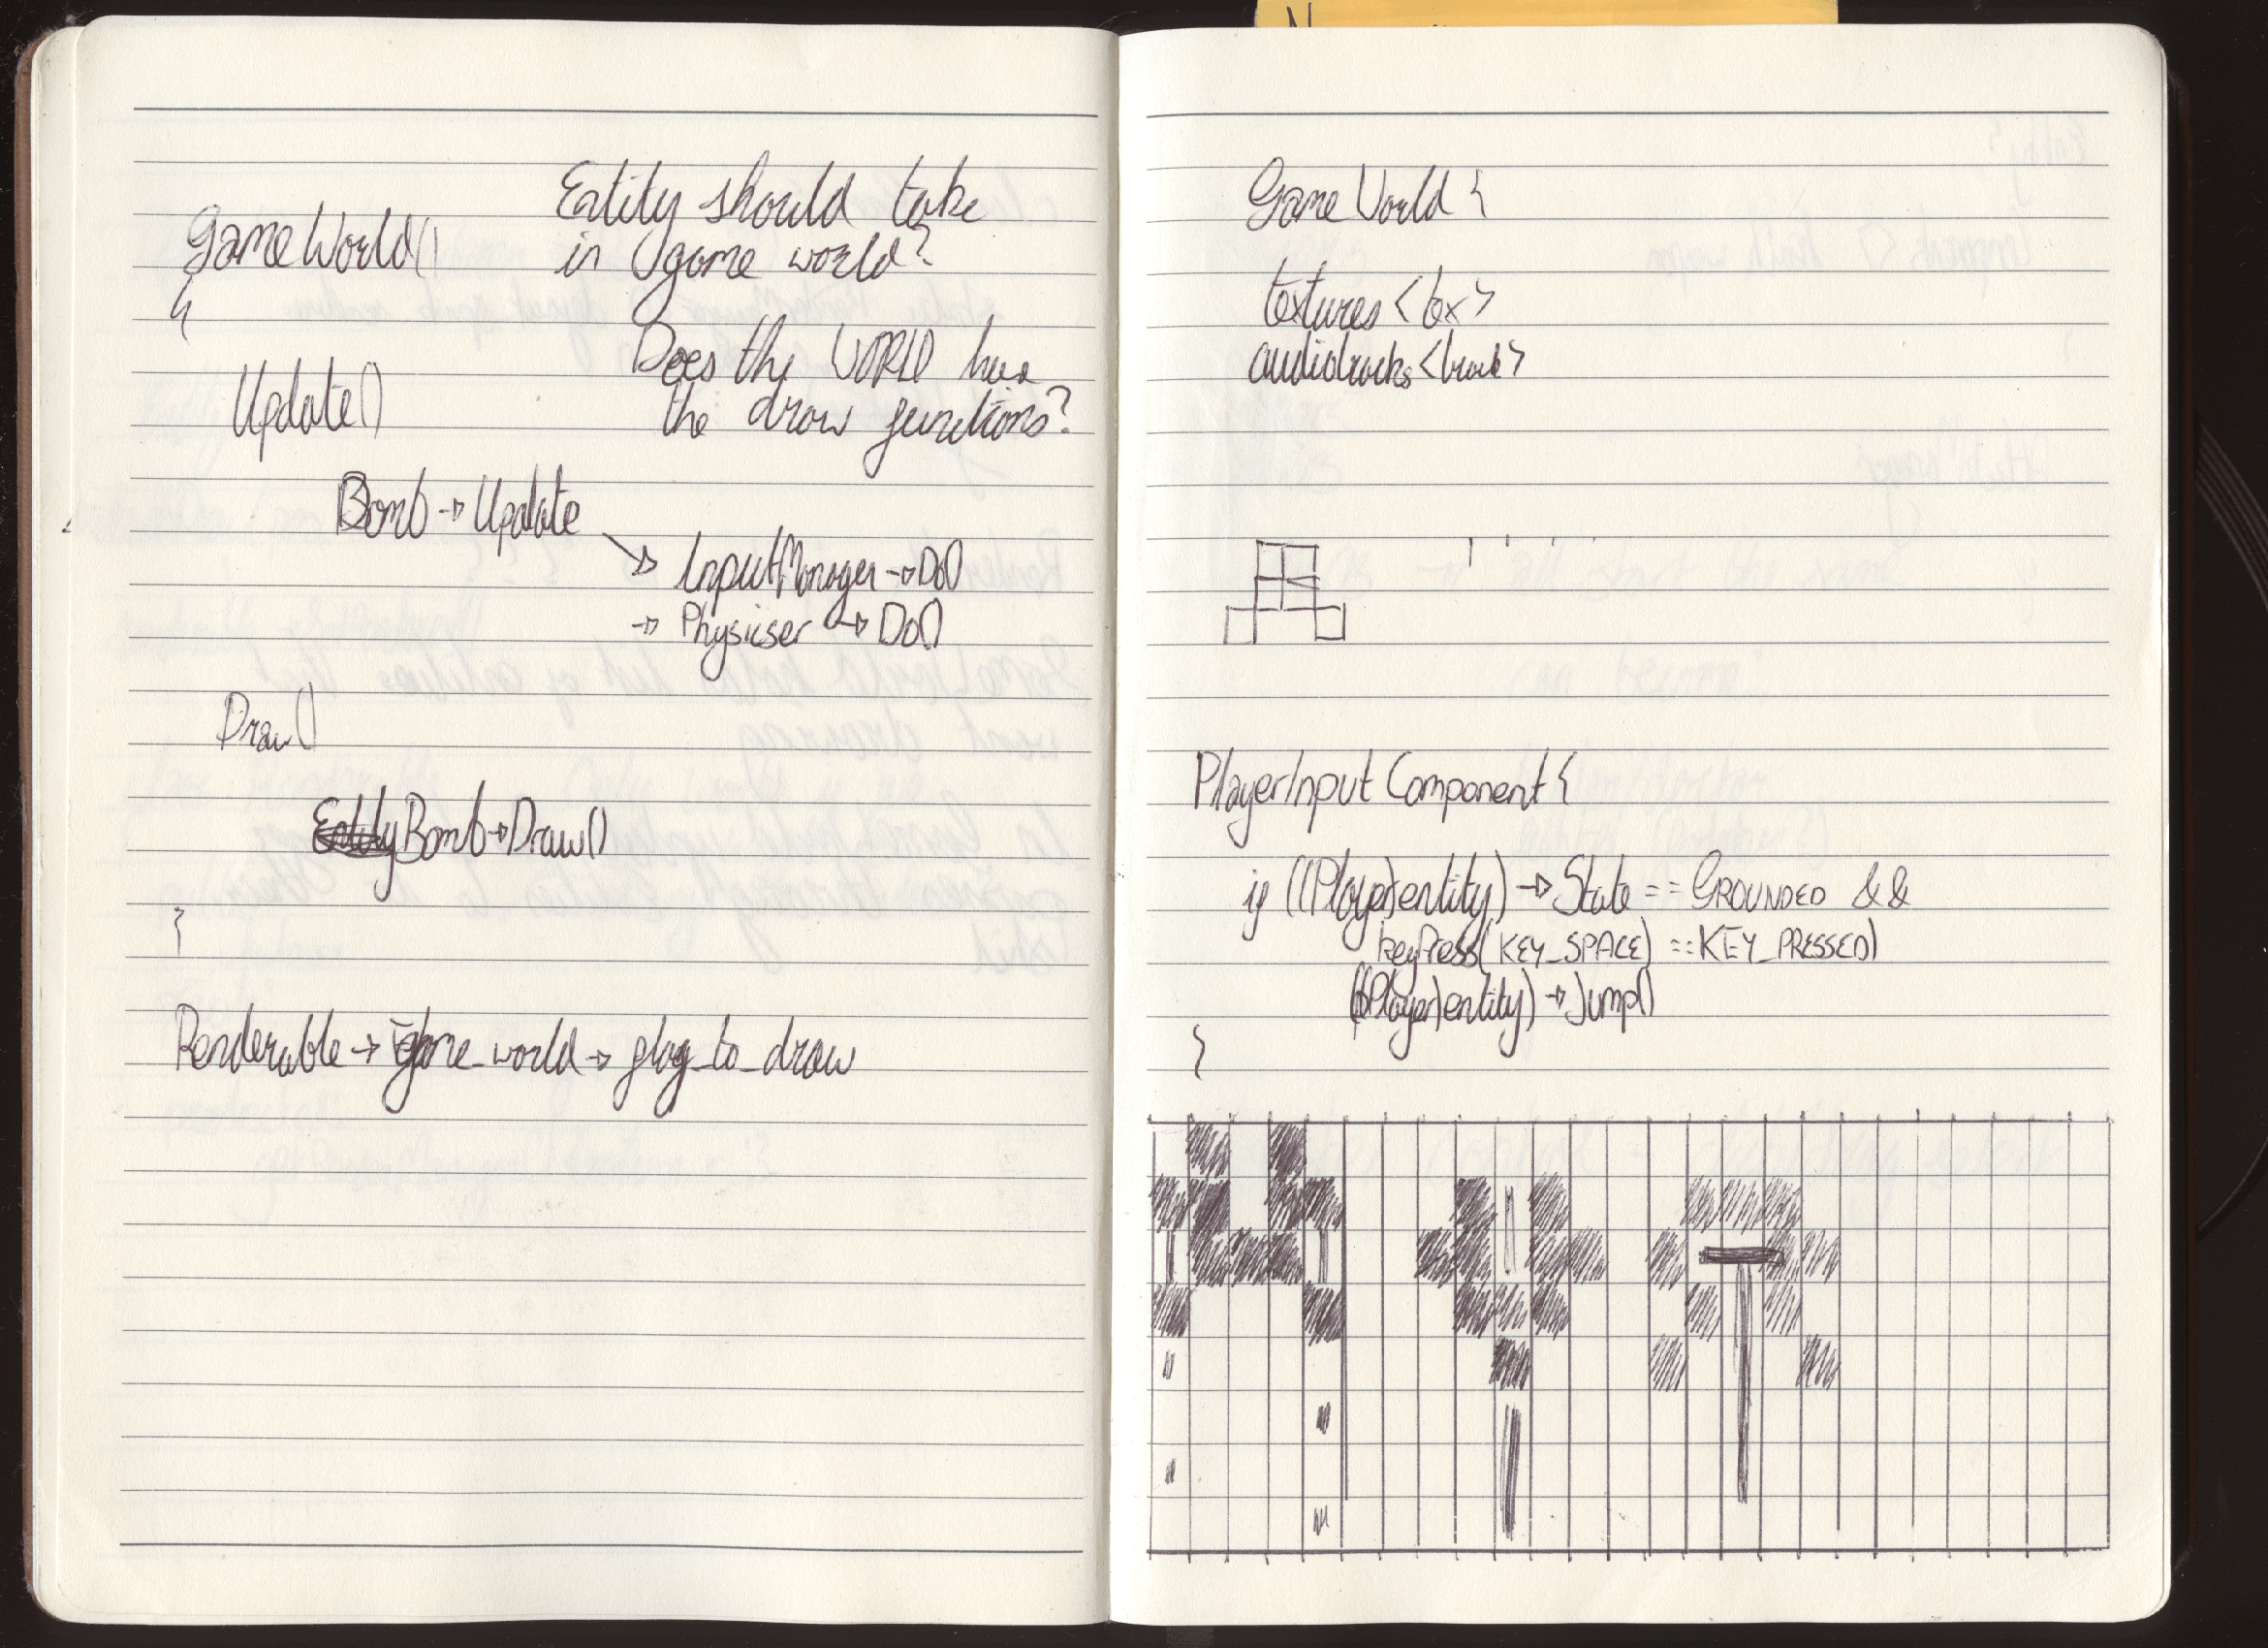 Entity should take
in game world?
GameWorld()
{
Does the WORLD have
the draw functions?
Update()
Bomb → Update
→ InputManager → Do()
→ Physicser → Do()
Draw()
Bomb → Draw()
}
Renderable → game_world → flag_to_draw
GameWorld {
textures <tex>
audiotracks <track>
PlayerInput Component {
if ((Player)entity) → State == GROUNDED &&
keyPress(KEY_SPACE) == KEY_PRESSED)
((Player)entity) → Jump()
}